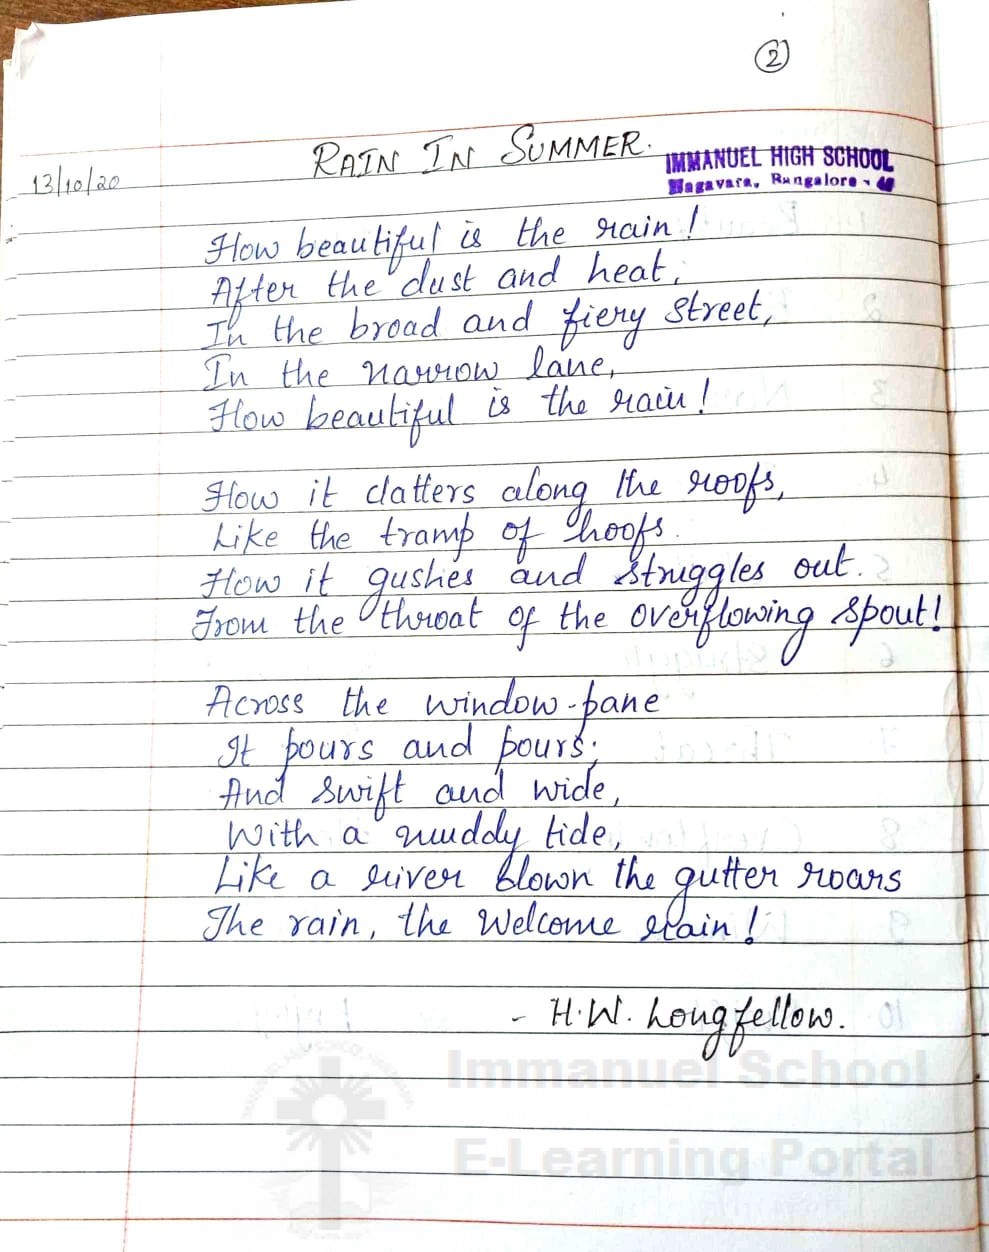 2
RAIN IN SUMMER.
IMMANUEL HIGH SCHOOL
Nagavara, Bangalore -
13/10/20
How beautiful is the rain!
After the dust and heat,
In the broad and fiery street,
In the narrow lane,
How beautiful is the rain!
How it clatters along the roofs,
Like the tramp of hoofs.
How it gushes and struggles out.
From the throat of the overflowing spout!
Across the window-pane
It pours and pours;
And swift and wide,
With a muddy tide,
Like a river blown the gutter roars
The rain, the welcome rain!
- H.W. Longfellow.
Immanuel School
E-Learning Portal